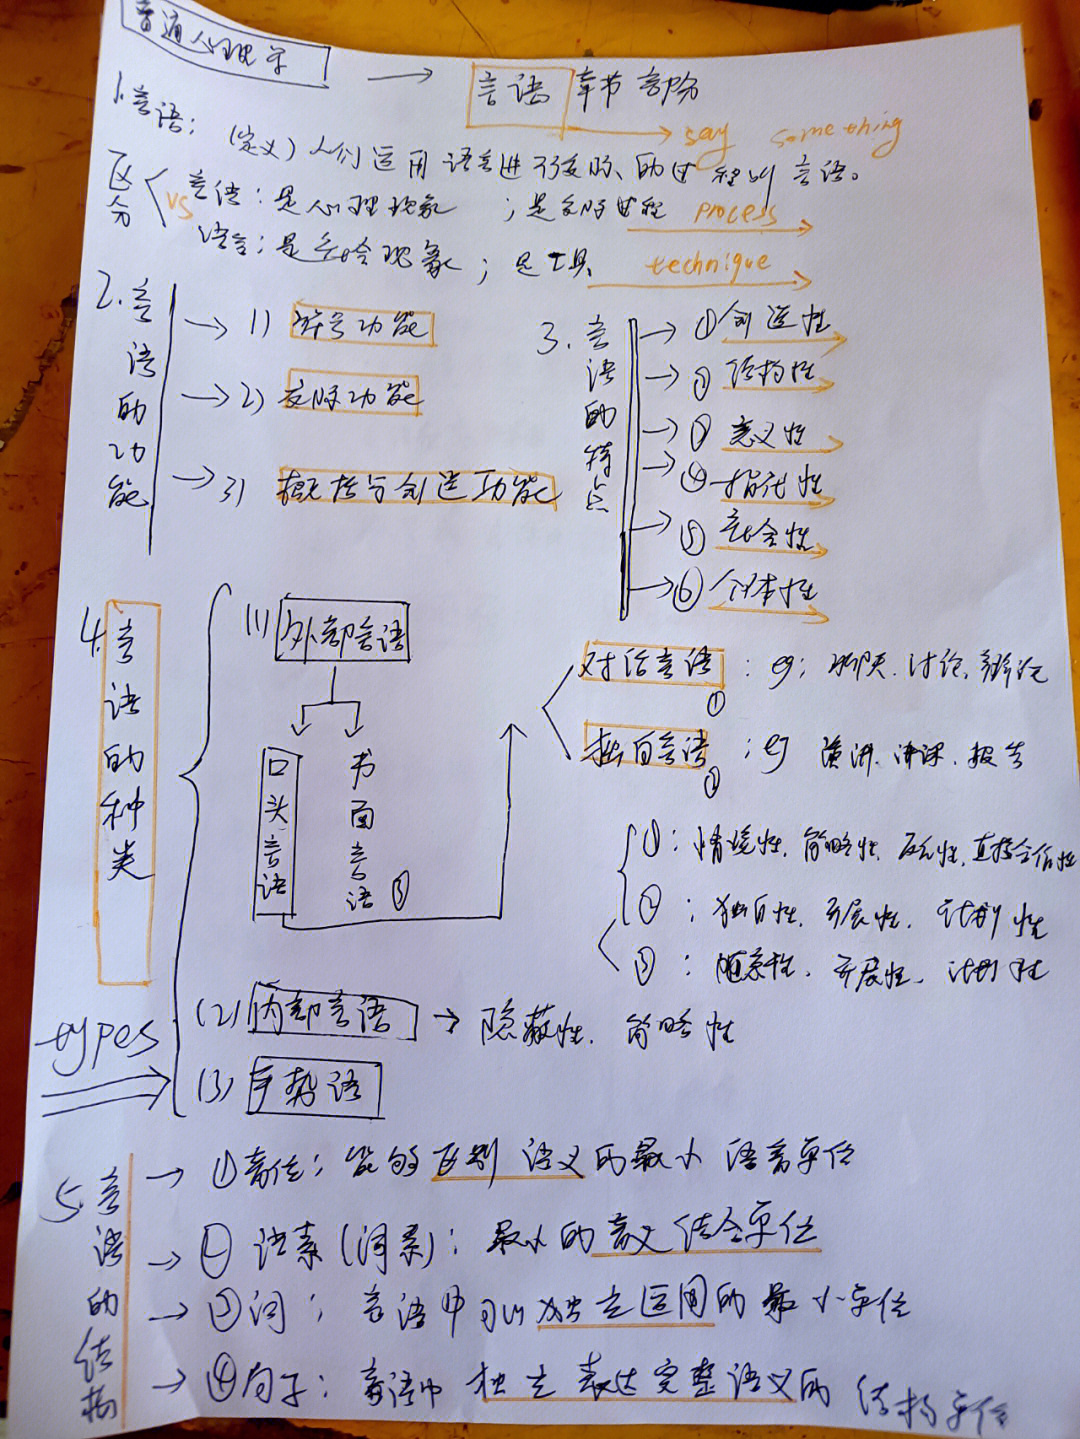 普通心理学
言语 章节部分
say something
1.言语: (定义) 人们运用语言进行交际的过程叫言语。
区分 vs
言语: 是心理现象 ; 是交际过程 process
语言: 是社会现象 ; 是工具 technique
2.言语的功能
1) 符号功能
2) 交际功能
3) 概括与创造功能
3.言语的特点
① 创造性
② 结构性
③ 意义性
④ 指代性
⑤ 社会性
⑥ 个体性
4.言语的种类
types
(1) 外部言语
口头言语
书面言语 ③
对话言语 ① : eg: 聊天、讨论、辩论
独白言语 ② : eg 演讲、讲课、报告
①: 情境性、简略性、反应性、直接
②: 独白性、开展性、计划性
③: 随意性、开展性、计划性
(2) 内部言语 隐蔽性、简略性
(3) 手势语
5.言语的结构
①音位: 能够区别语义的最小语音单位
② 语素(词素): 最小的音义结合单位
③词: 言语中可以独立运用的最小单位
④句子: 言语中独立表达完整语义的结构单位